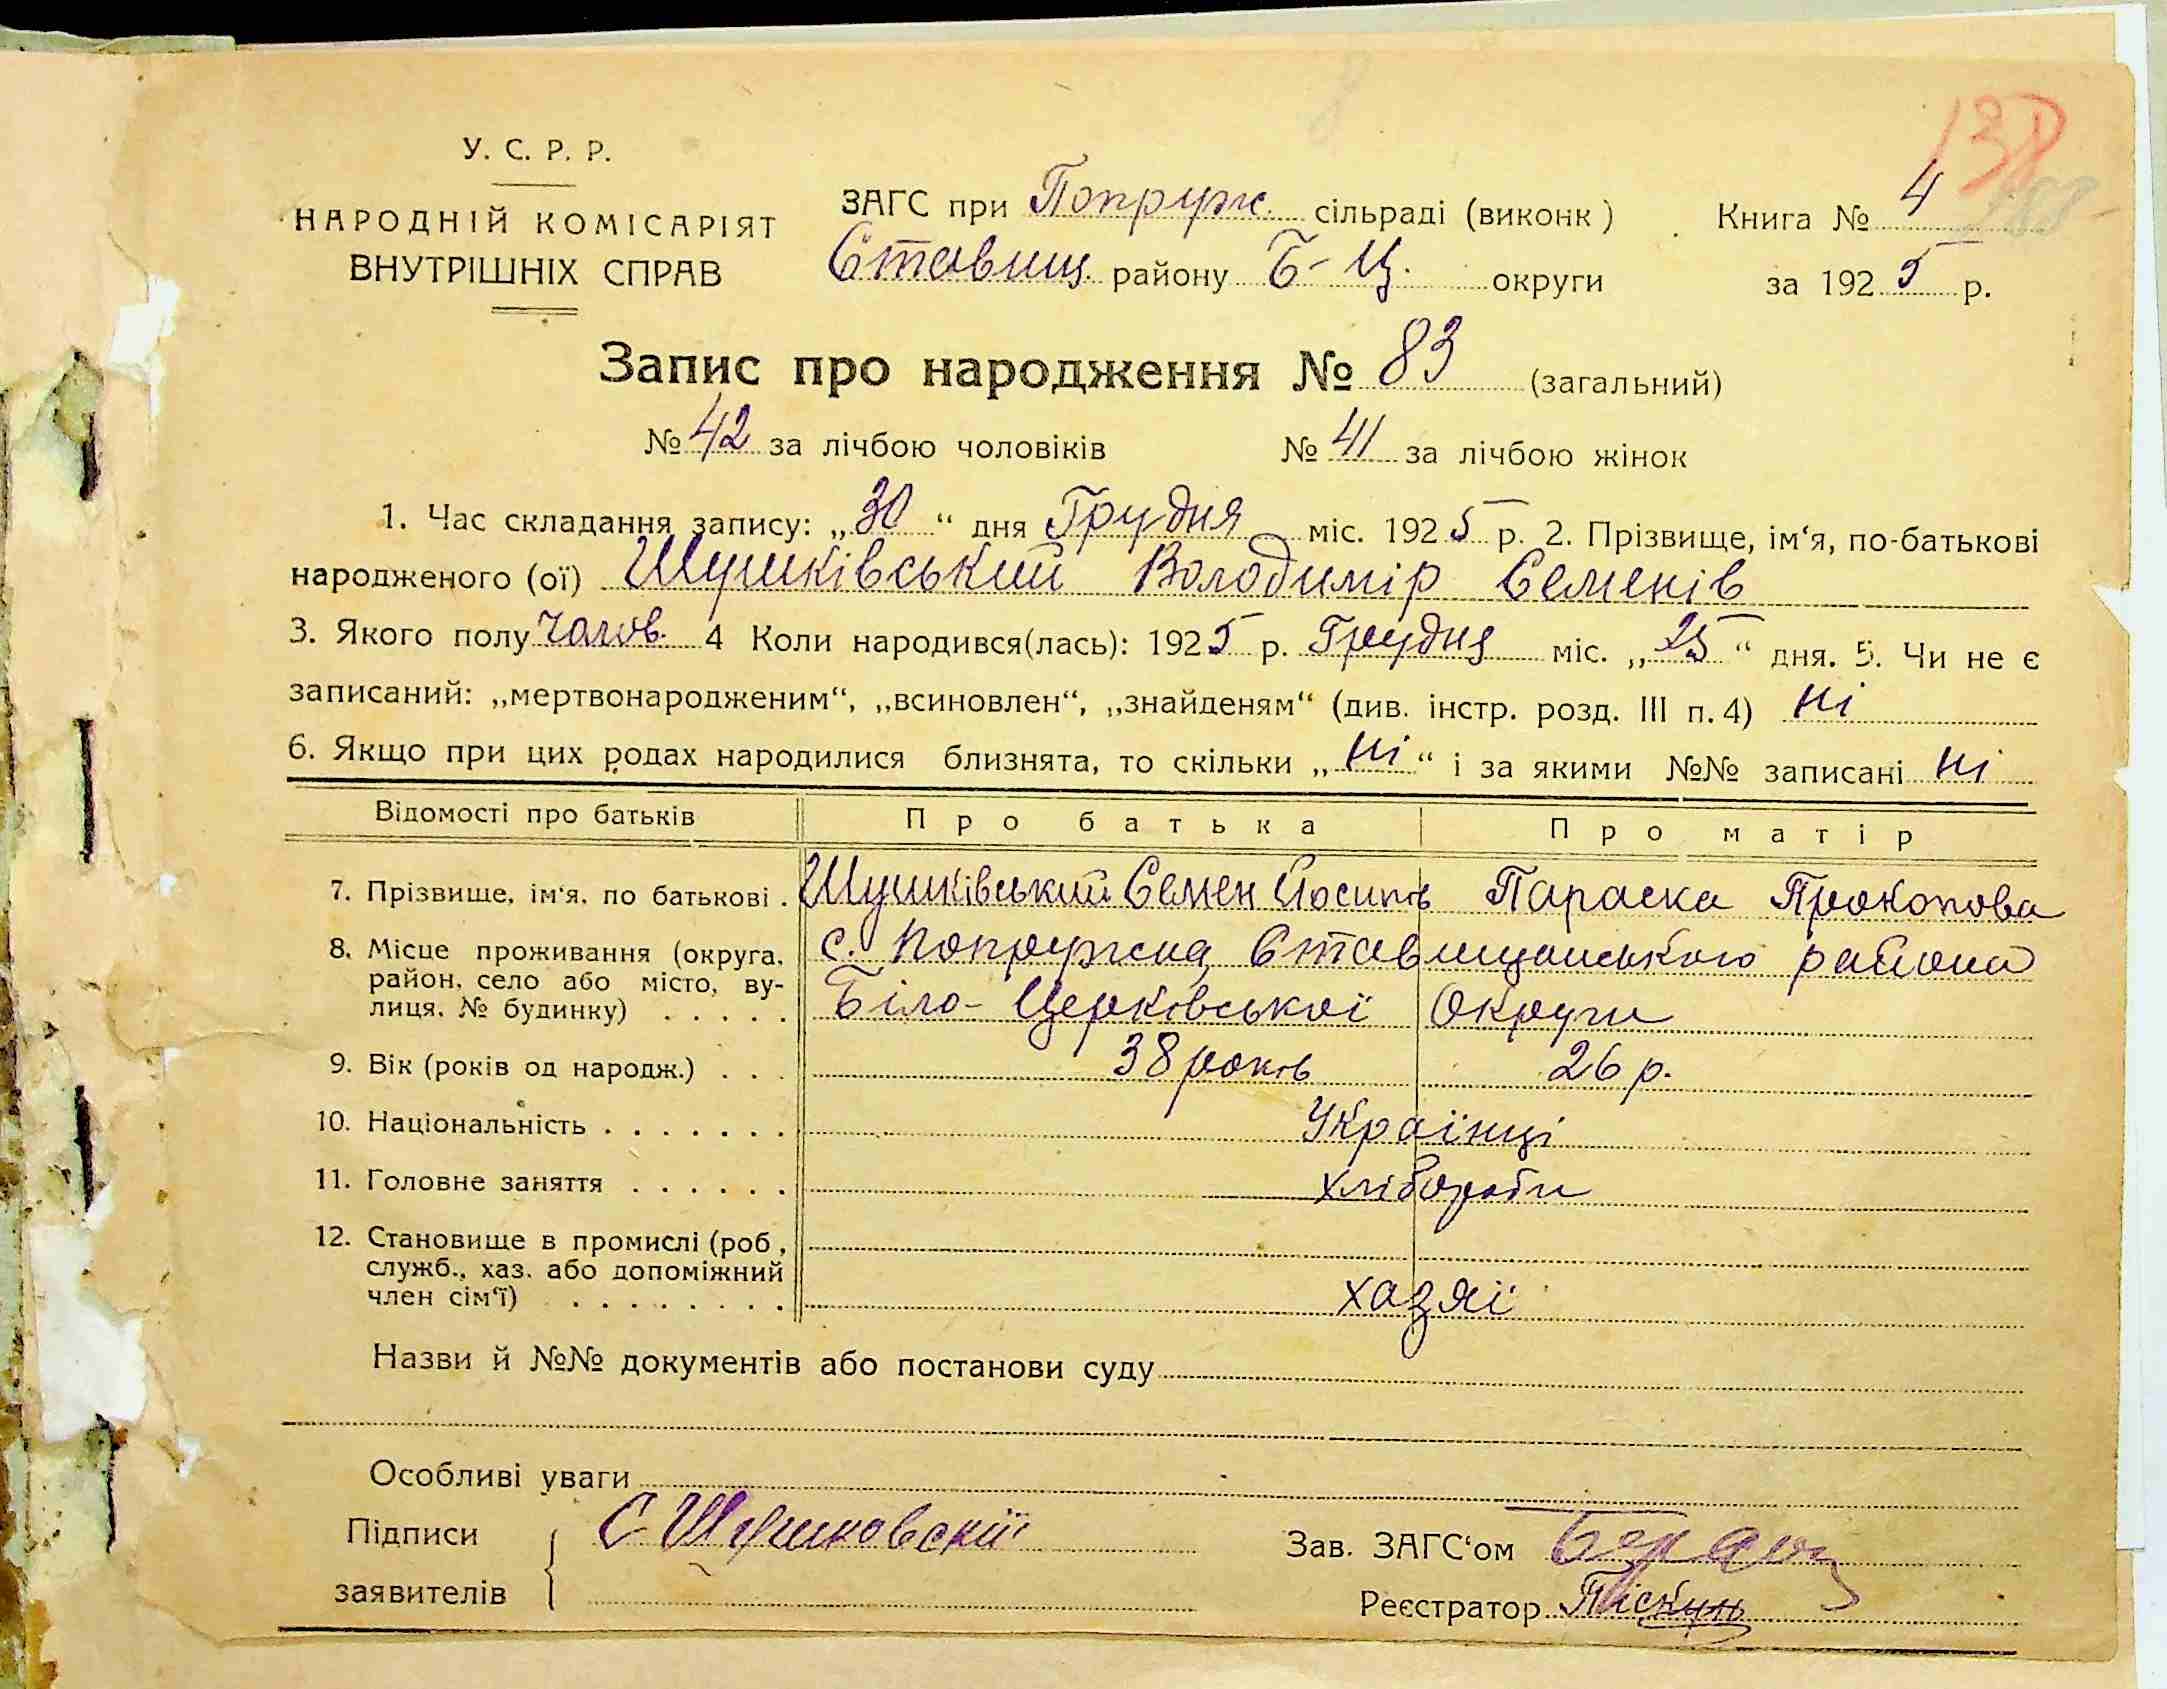 У. С. Р. Р.
НАРОДНІЙ КОМІСАРІЯТ
ВНУТРІШНІХ СПРАВ
ЗАГС при Попруж. сільраді (виконк)
Ставищ. району Б-Ц. округи
138
Книга № 4
за 1925 р.
Запис про народження № 83 (загальний)
№ 42 за лічбою чоловіків № 41 за лічбою жінок
1. Час складання запису: „30“ дня Грудня міс. 1925 р. 2. Прізвище, ім‘я, по-батькові
народженого (ої) Шушківський Володимір Семенів
3. Якого полу чолов. 4 Коли народився(лась): 1925 р. Грудня міс. „25“ дня. 5. Чи не є
записаний: „мертвонародженим“, „всиновлен“, „знайденям“ (див. інстр. розд. III п. 4) Ні
6. Якщо при цих родах народилися близнята, то скільки „Ні“ і за якими №№ записані Ні
Відомості про батьків Про батька Про матір
7. Прізвище, ім‘я, по батькові . Шушківський Семен Йосипів Параска Прокопова
8. Місце проживання (округа, с. Попружна Ставищанського района
район, село або місто, ву-
лиця, № будинку) . . . . . Біло-Церківської Округи
9. Вік (років од народж.) . . . 38 років 26 р.
10. Національність . . . . . . . Українці
11. Головне заняття . . . . . . хлібороби
12. Становище в промислі (роб,
служб., хаз. або допоміжний
член сім‘ї) . . . . . . . . хазяї
Назви й №№ документів або постанови суду
Особливі уваги
Підписи С Шушковскій
заявителів
Зав. ЗАГС‘ом
Реєстратор Піскунь